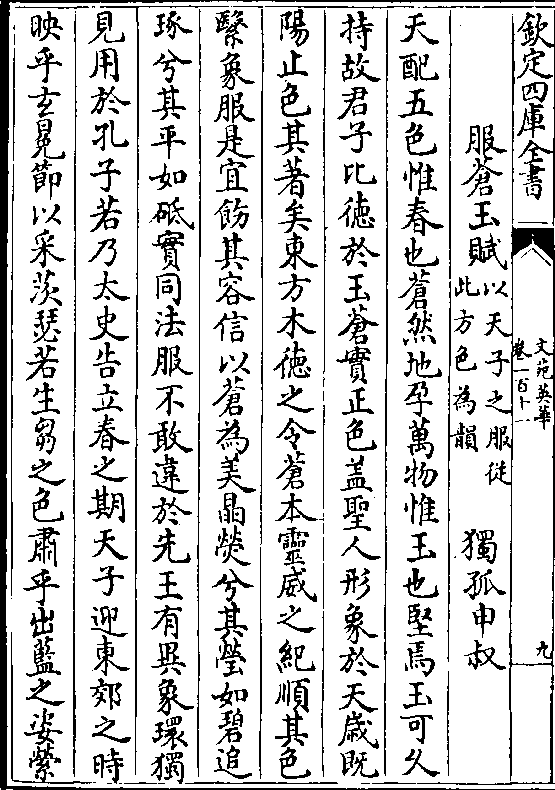 欽定四庫全書
文苑英華
卷一百十一
九
服蒼玉賦以天子之服從
此方色為韻 獨孤申叔
天配五色惟春也蒼然地孕萬物惟玉也堅焉玉可久
持故君子比徳於玉蒼實正色盖聖人形象於天嵗既
陽止色其著矣東方木徳之令蒼本靈威之紀順其色
繄象服是宜飭其容信以蒼為美晶熒兮其瑩如碧追
琢兮其平如砥實同法服不敢違於先王有異象環獨
見用於孔子若乃太史告立春之期天子迎東郊之時
映乎玄冕節以采茨瑟若生芻之色肅乎出藍之姿縈